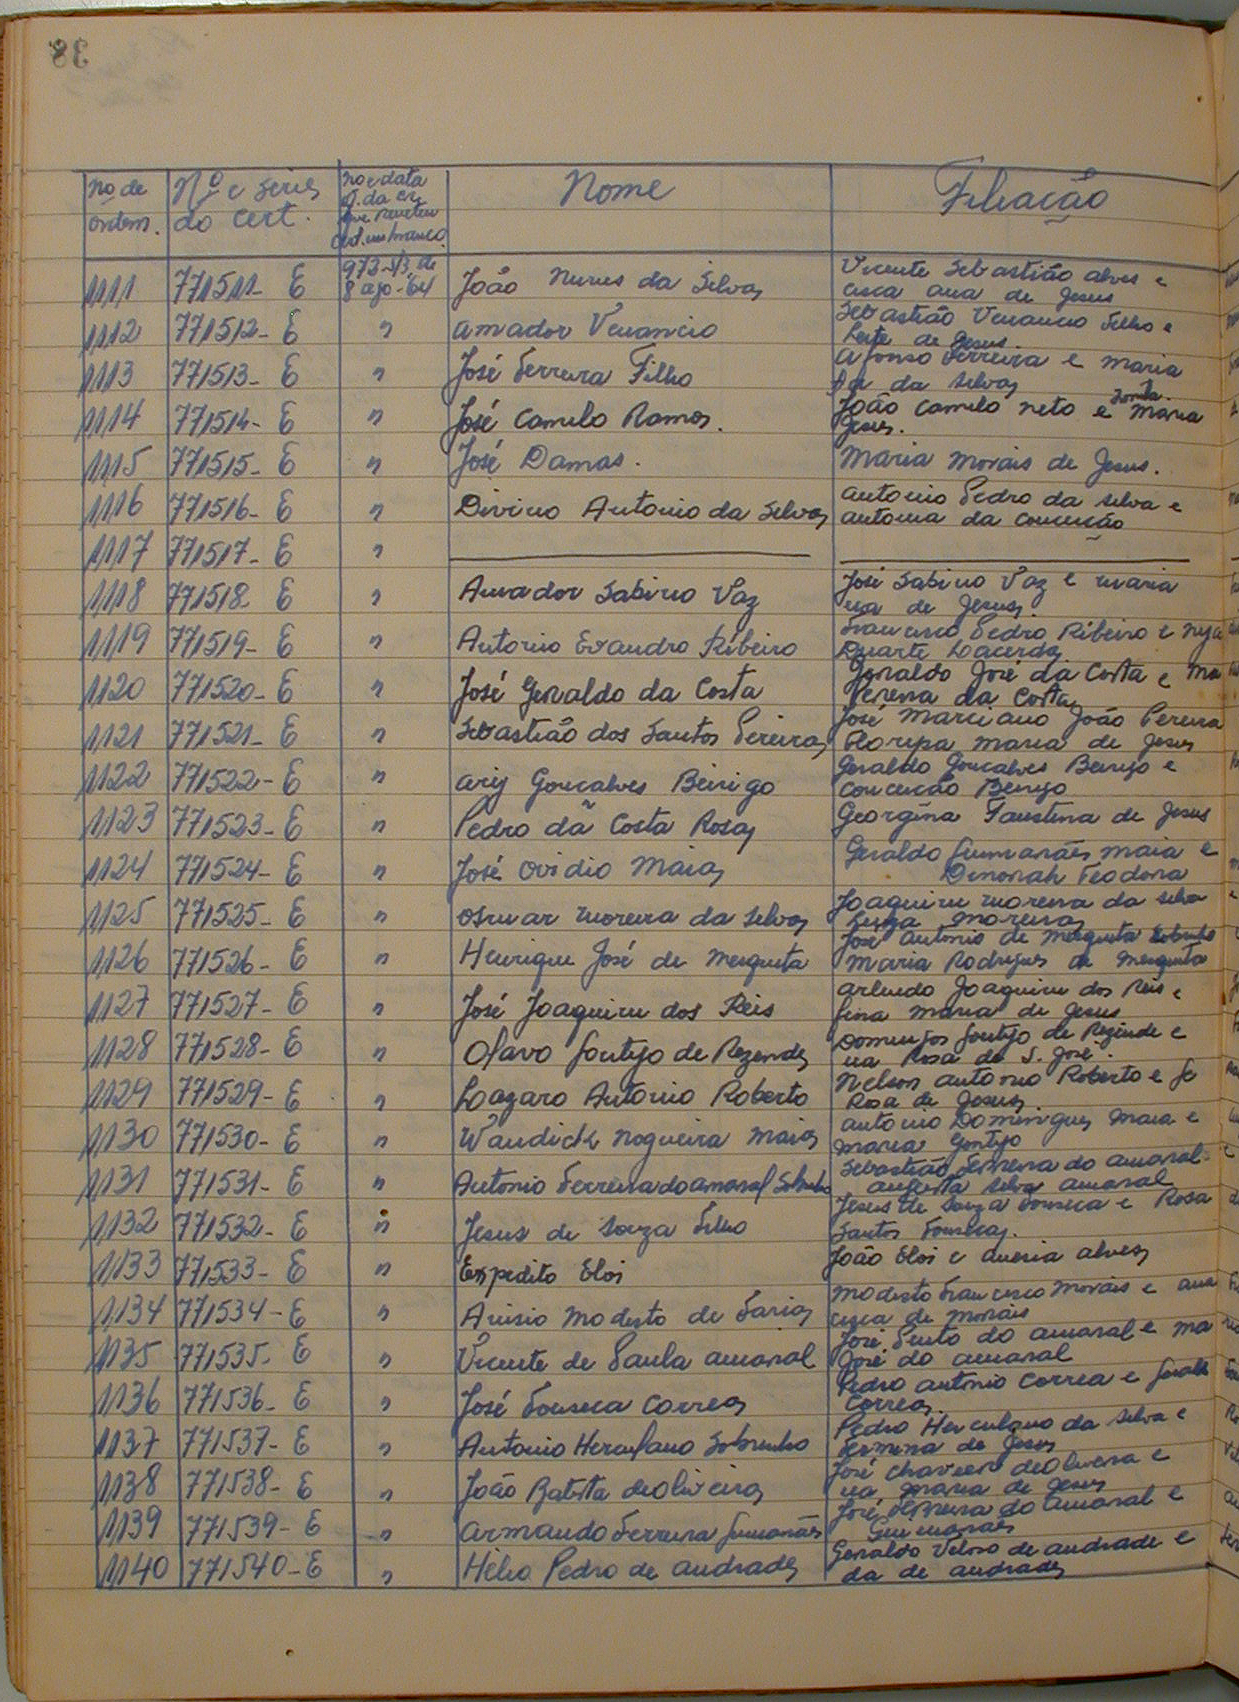 38
Nº de ordem. Nº e série do cert. Nº e data Nome Filiação
1111 771511- E 973-S/3 de 8 ago-64 João Nunes da Silva Vicente Sebastião Alves e
cisca Ana de Jesus
1112 771512- E " Amador Venancio Sebastião Venancio Filho e
Leite de Jesus.
1113 771513- E " José Ferreira Filho Afonso Ferreira e Maria
da Silva
1114 771514- E " José Camilo Ramos. João Camilo Neto e Maria
Jesus.
1115 771515- E " José Damas. Maria Morais de Jesus.
1116 771516- E " Divino Antonio da Silva Antonio Pedro da Silva e
Antonia da Conceição
1117 771517- E "
1118 771518- E " Amador Sabino Vaz José Sabino Vaz e Maria
na de Jesus.
1119 771519- E " Antonio Evandro Ribeiro Francisco Pedro Ribeiro e
Duarte Lacerda
1120 771520- E " José Geraldo da Costa Geraldo José da Costa e Ma
Pereira da Costa
1121 771521- E " Sebastião dos Santos Pereira José Marciano João Pereira
Floripa Maria de Jesus
1122 771522- E " Ary Gonçalves Beirigo Geraldo Gonçalves Beirigo e
Conceição Beirigo
1123 771523- E " Pedro da Costa Rosa Georgina Faustina de Jesus
1124 771524- E " José Ovidio Maia Geraldo Guimarães Maia e
Dinorah Teodora
1125 771525- E " Osmar Moreira da Silva Joaquim Moreira da Silva
Luiza Moreira
1126 771526- E " Henrique José de Mesquita José Antonio de Mesquita Sobrinho
Maria Rodrigues de Mesquita
1127 771527- E " José Joaquim dos Reis Arlindo Joaquim dos Reis e
fina Maria de Jesus
1128 771528- E " Olavo Gontijo de Rezende Domingos Gontijo de Rezende e
na Rosa de S. José.
1129 771529- E " Lazaro Antonio Roberto Nelson Antonio Roberto e Ge
Rosa de Jesus
1130 771530- E " Wandick Nogueira Maia Antonio Domingues Maia e
Maria Gontijo
1131 771531- E " Antonio Ferreira do Amaral Sobrinho Sebastião Ferreira do Amaral
Augusta Silva Amaral
1132 771532- E " Jesus de Souza Filho Jesus de Souza Fonseca e Rosa
Santos Fonseca.
1133 771533- E " Expedito Eloi João Eloi e Alves
1134 771534- E " Anisio Modesto de Faria Modesto Francisco Morais e Ana
cisca de Morais
1135 771535- E " Vicente de Paula Amaral José Pinto do Amaral e Ma
José do Amaral
1136 771536- E " José Fonseca Correa Pedro Antonio Correa e
Correa.
1137 771537- E " Antonio Herculano Sobrinho Pedro Herculano da Silva e
Firmina de Jesus
1138 771538- E " João Batista de Oliveira José Chaveiro de Oliveira e
na Maria de Jesus
1139 771539- E " Armando Ferreira Guimarães José Ferreira do Amaral e
Guimarães
1140 771540- E " Hélio Pedro de Andrade Geraldo Veloso de Andrade e
da de Andrade